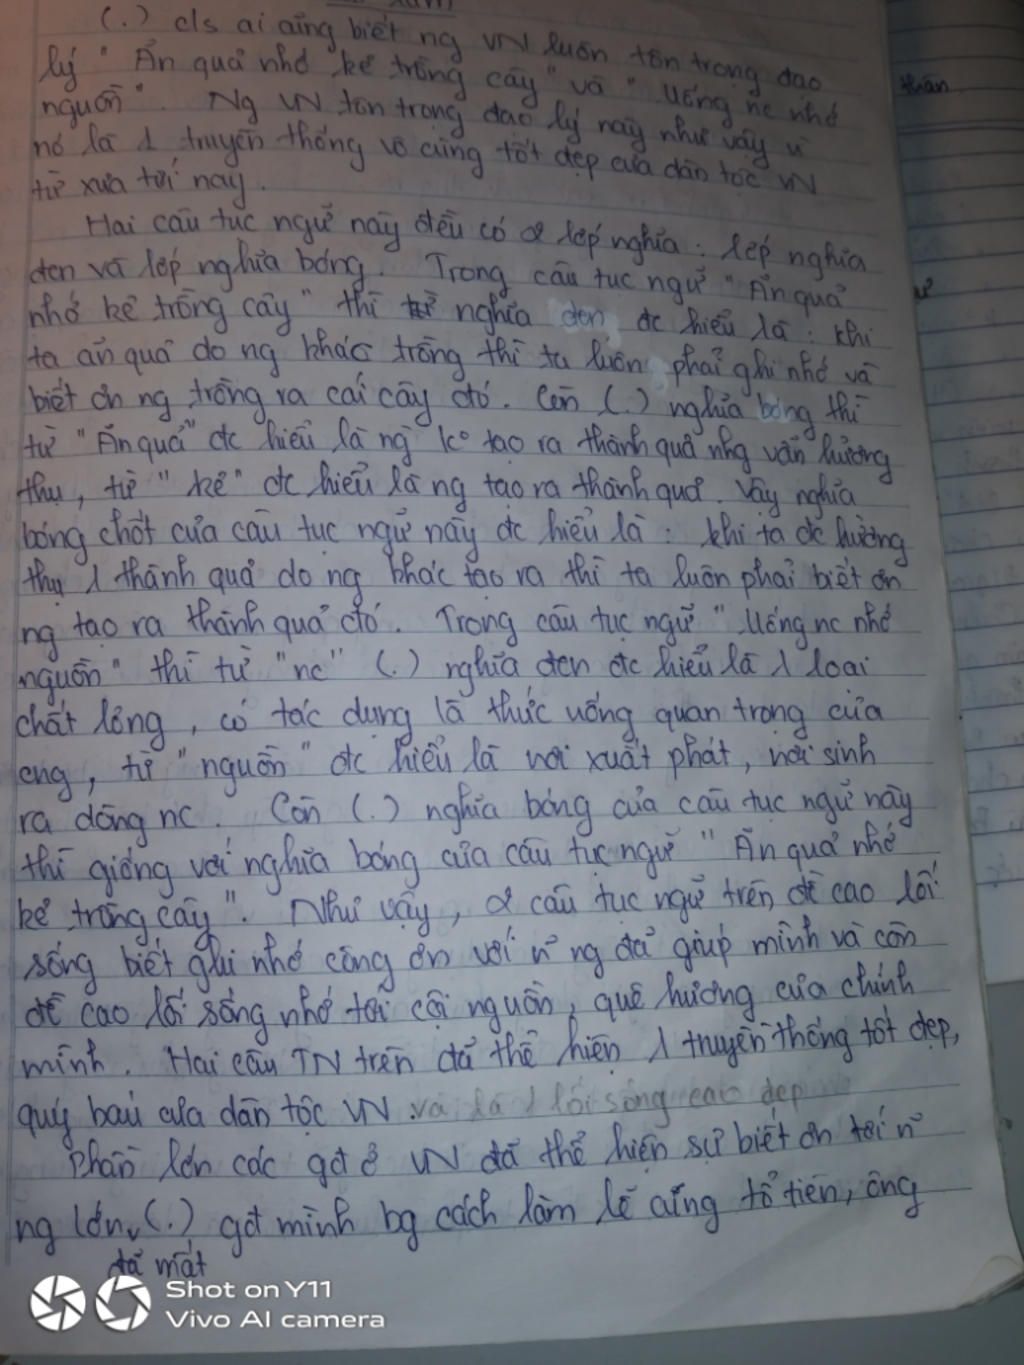 (.) c/s ai cũng biết ng VN luôn tôn trọng đạo
lý " Ăn quả nhớ kẻ trồng cây " và " Uống nc nhớ
nguồn ". Ng VN tôn trọng đạo lý này như vậy vì
nó là 1 truyền thống vô cùng tốt đẹp của dân tộc VN
từ xưa tới nay.
Hai câu tục ngữ này đều có 2 lớp nghĩa : lớp nghĩa
đen và lớp nghĩa bóng. Trong câu tục ngữ " Ăn quả
nhớ kẻ trồng cây " thì nghĩa đen đc hiểu là : khi
ta ăn quả do ng khác trồng thì ta luôn phải ghi nhớ và
biết ơn ng trồng ra cái cây đó. Còn (.) nghĩa bóng thì
từ " Ăn quả" đc hiểu là ng ko tạo ra thành quả nhg vẫn hưởng
thụ, từ " kẻ" đc hiểu là ng tạo ra thành quả. Vậy nghĩa
bóng chốt của câu tục ngữ này đc hiểu là : khi ta đc hưởng
thụ 1 thành quả do ng khác tạo ra thì ta luôn phải biết ơn
ng tạo ra thành quả đó. Trong câu tục ngữ " Uống nc nhớ
nguồn " thì từ "nc" (.) nghĩa đen đc hiểu là 1 loại
chất lỏng, có tác dụng là thức uống quan trọng của
cng, từ " nguồn " đc hiểu là nơi xuất phát, nơi sinh
ra dòng nc. Còn (.) nghĩa bóng của câu tục ngữ này
thì giống với nghĩa bóng của câu tục ngữ " Ăn quả nhớ
kẻ trồng cây ". Như vậy, 2 câu tục ngữ trên đề cao lối
sống biết ghi nhớ công ơn với ~n ng đã giúp mình và còn
đề cao lối sống nhớ tới cội nguồn, quê hương của chính
mình. Hai câu TN trên đã thể hiện 1 truyền thống tốt đẹp,
quý báu của dân tộc VN và là 1 lối sống cao đẹp
Phần lớn các gđ ở VN đã thể hiện sự biết ơn tới ~n
ng lớn (.) gđ mình bg cách làm lễ cúng tổ tiên, ông
đã mất
Shot on Y11
Vivo AI camera